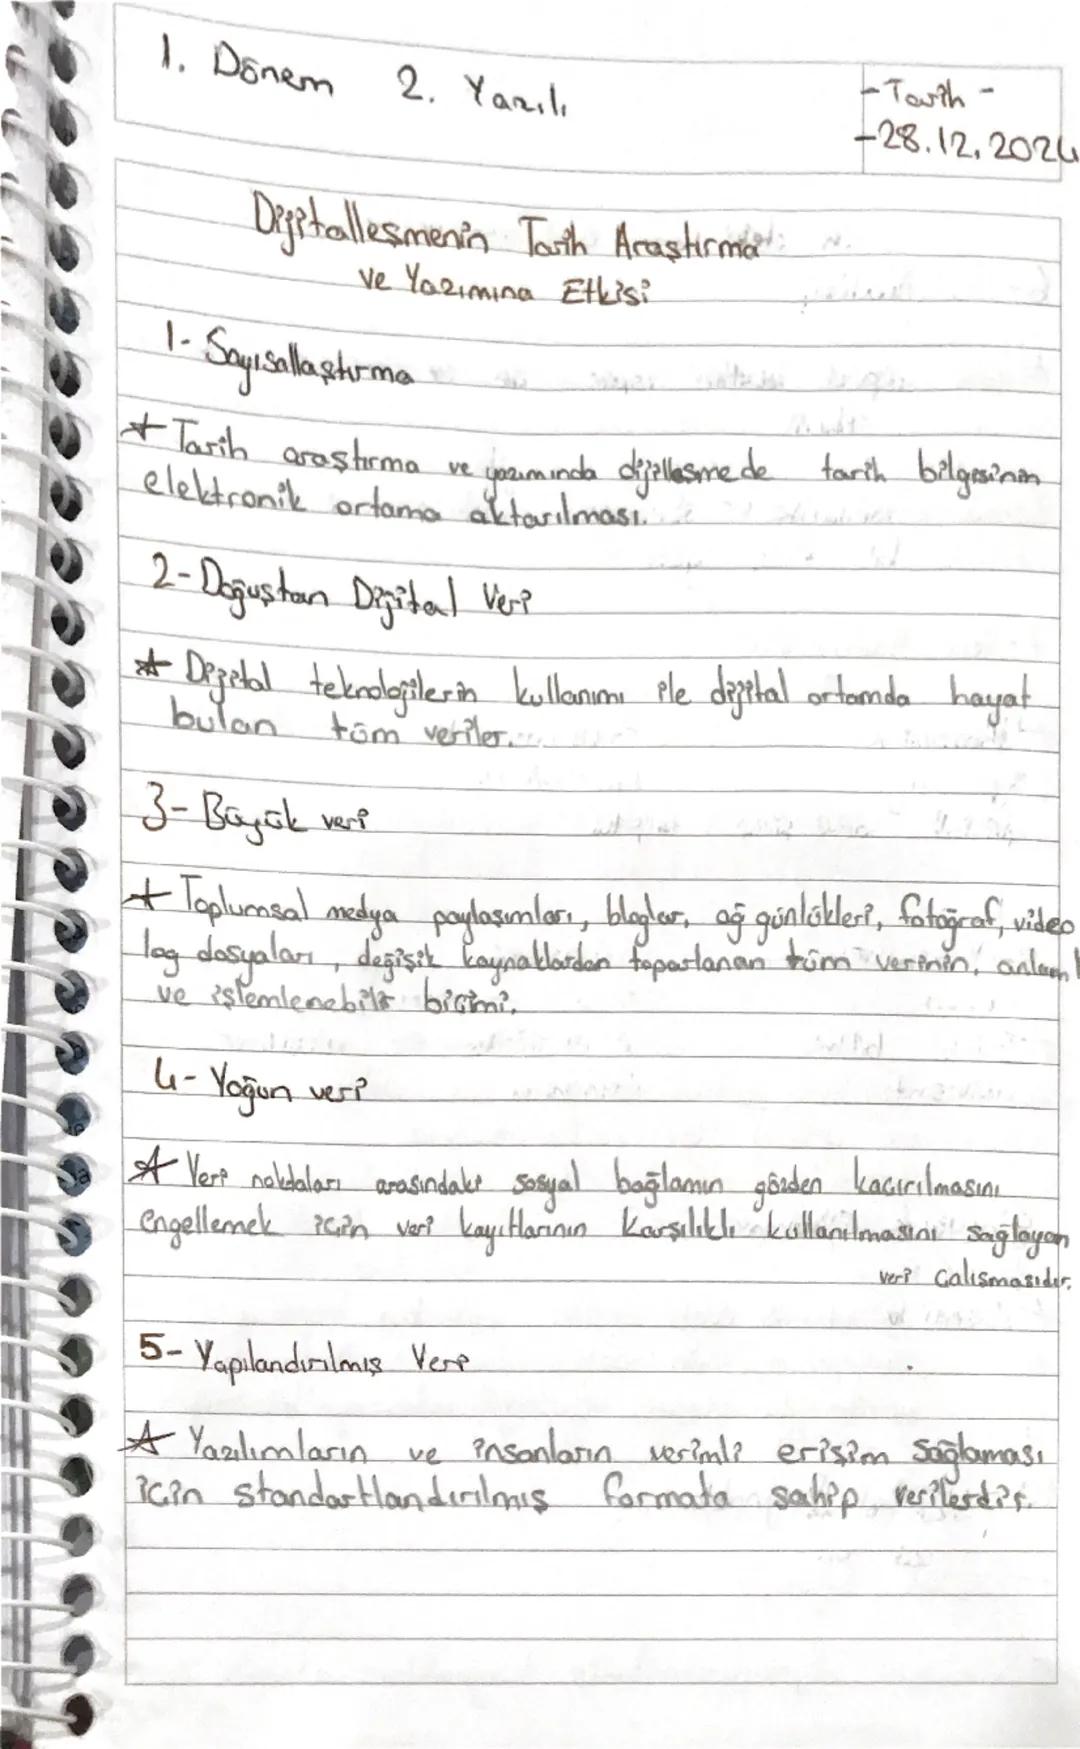 1. Dönem 2. Yazılı
- Tarih -
- 28.12.2024
Dijitalleşmenin Tarih Araştırma
ve Yazımına Etkisi
1- Sayısallaştırma
* Tarih araştırma ve yazımında dijilleşmede tarih bilgisinin
elektronik ortama aktarılması.
2- Doğuştan Dijital Veri
* Dijital teknolojilerin kullanımı ile dijital ortamda hayat
bulan tüm veriler.
3- Büyük veri
* Toplumsal medya paylaşımları, bloglar, ağ günlükleri, fotoğraf, video
log dosyaları, değişik kaynaklardan toparlanan tüm verinin, anlamlı
ve işlemlenebilir biçimi.
4- Yoğun veri
* Veri noktaları arasındaki sosyal bağlamın gözden kaçırılmasını
engellemek için veri kayıtlarının karşılıklı kullanılmasını sağlayan
veri çalışmasıdır.
5- Yapılandırılmış Veri
* Yazılımların ve insanların verimli erişim sağlaması
için standartlandırılmış formata sahip verilerdir.